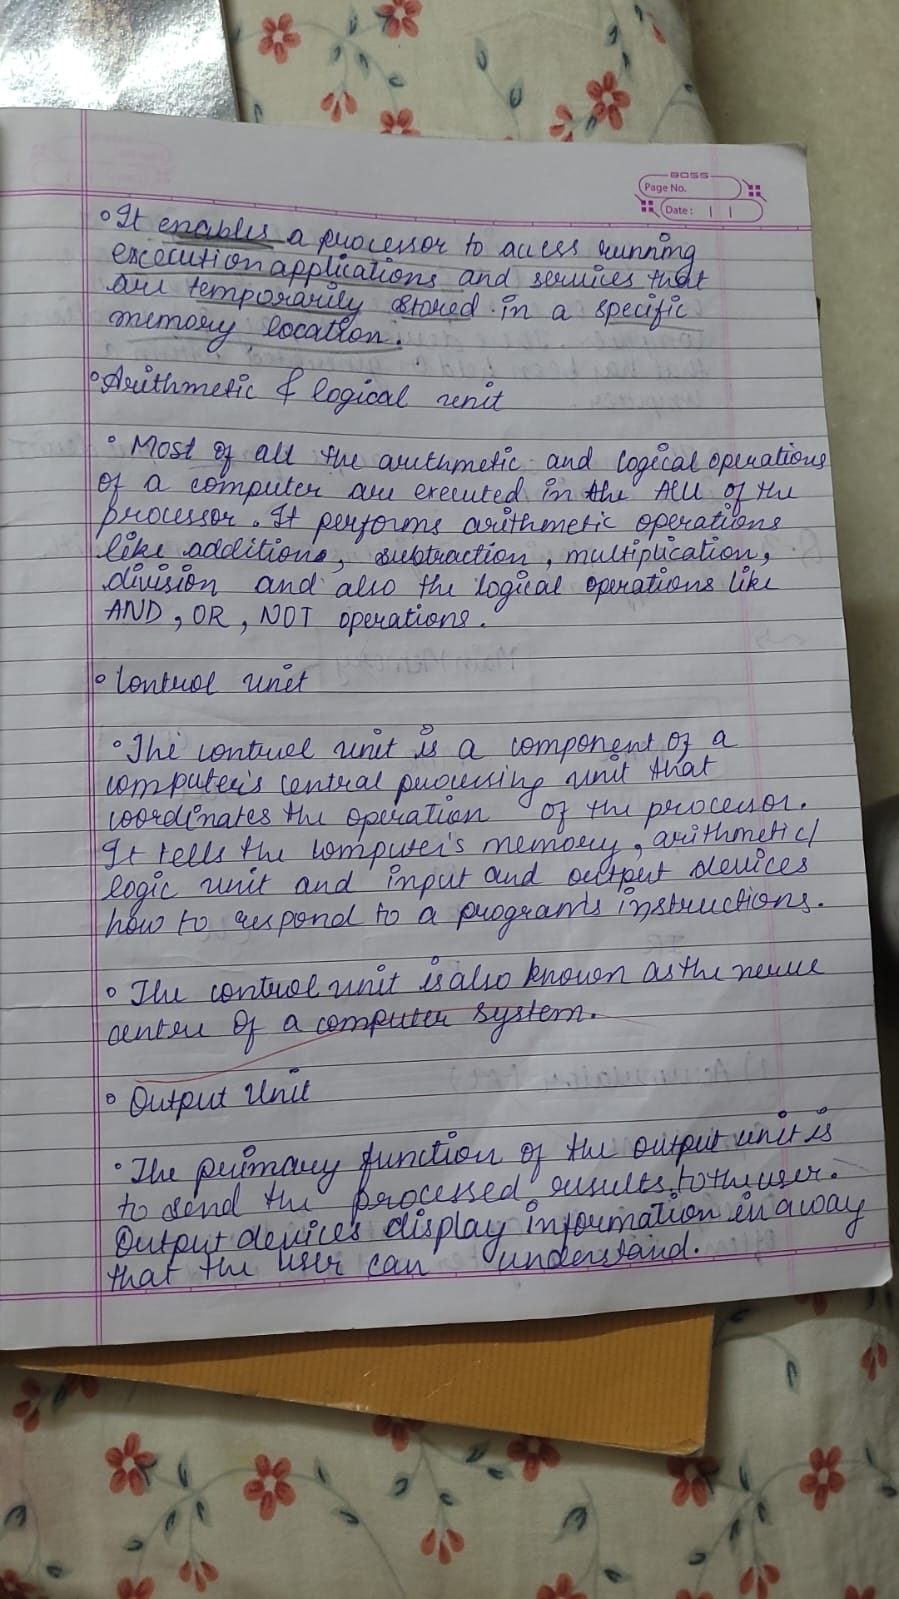 BOSS
Page No.
Date: | |
°It enables a processor to access running
execution applications and services that
are temporarily stored in a specific
memory location.
°Arithmetic & logical unit
° Most of all the arithmetic and logical operations
of a computer are executed in the ALU of the
processor. It performs arithmetic operations
like additions, subtraction, multiplication,
division and also the logical operations like
AND, OR, NOT operations.
° Control unit
°The control unit is a component of a
computer's central processing unit that
coordinates the operation of the processor.
It tells the computer's memory, arithmetic/
logic unit and input and output devices
how to respond to a program's instructions.
° The control unit is also known as the nerve
centre of a computer system.
° Output Unit
°The primary function of the output unit is
to send the processed results to the user.
Output devices display information in a way
that the user can understand.